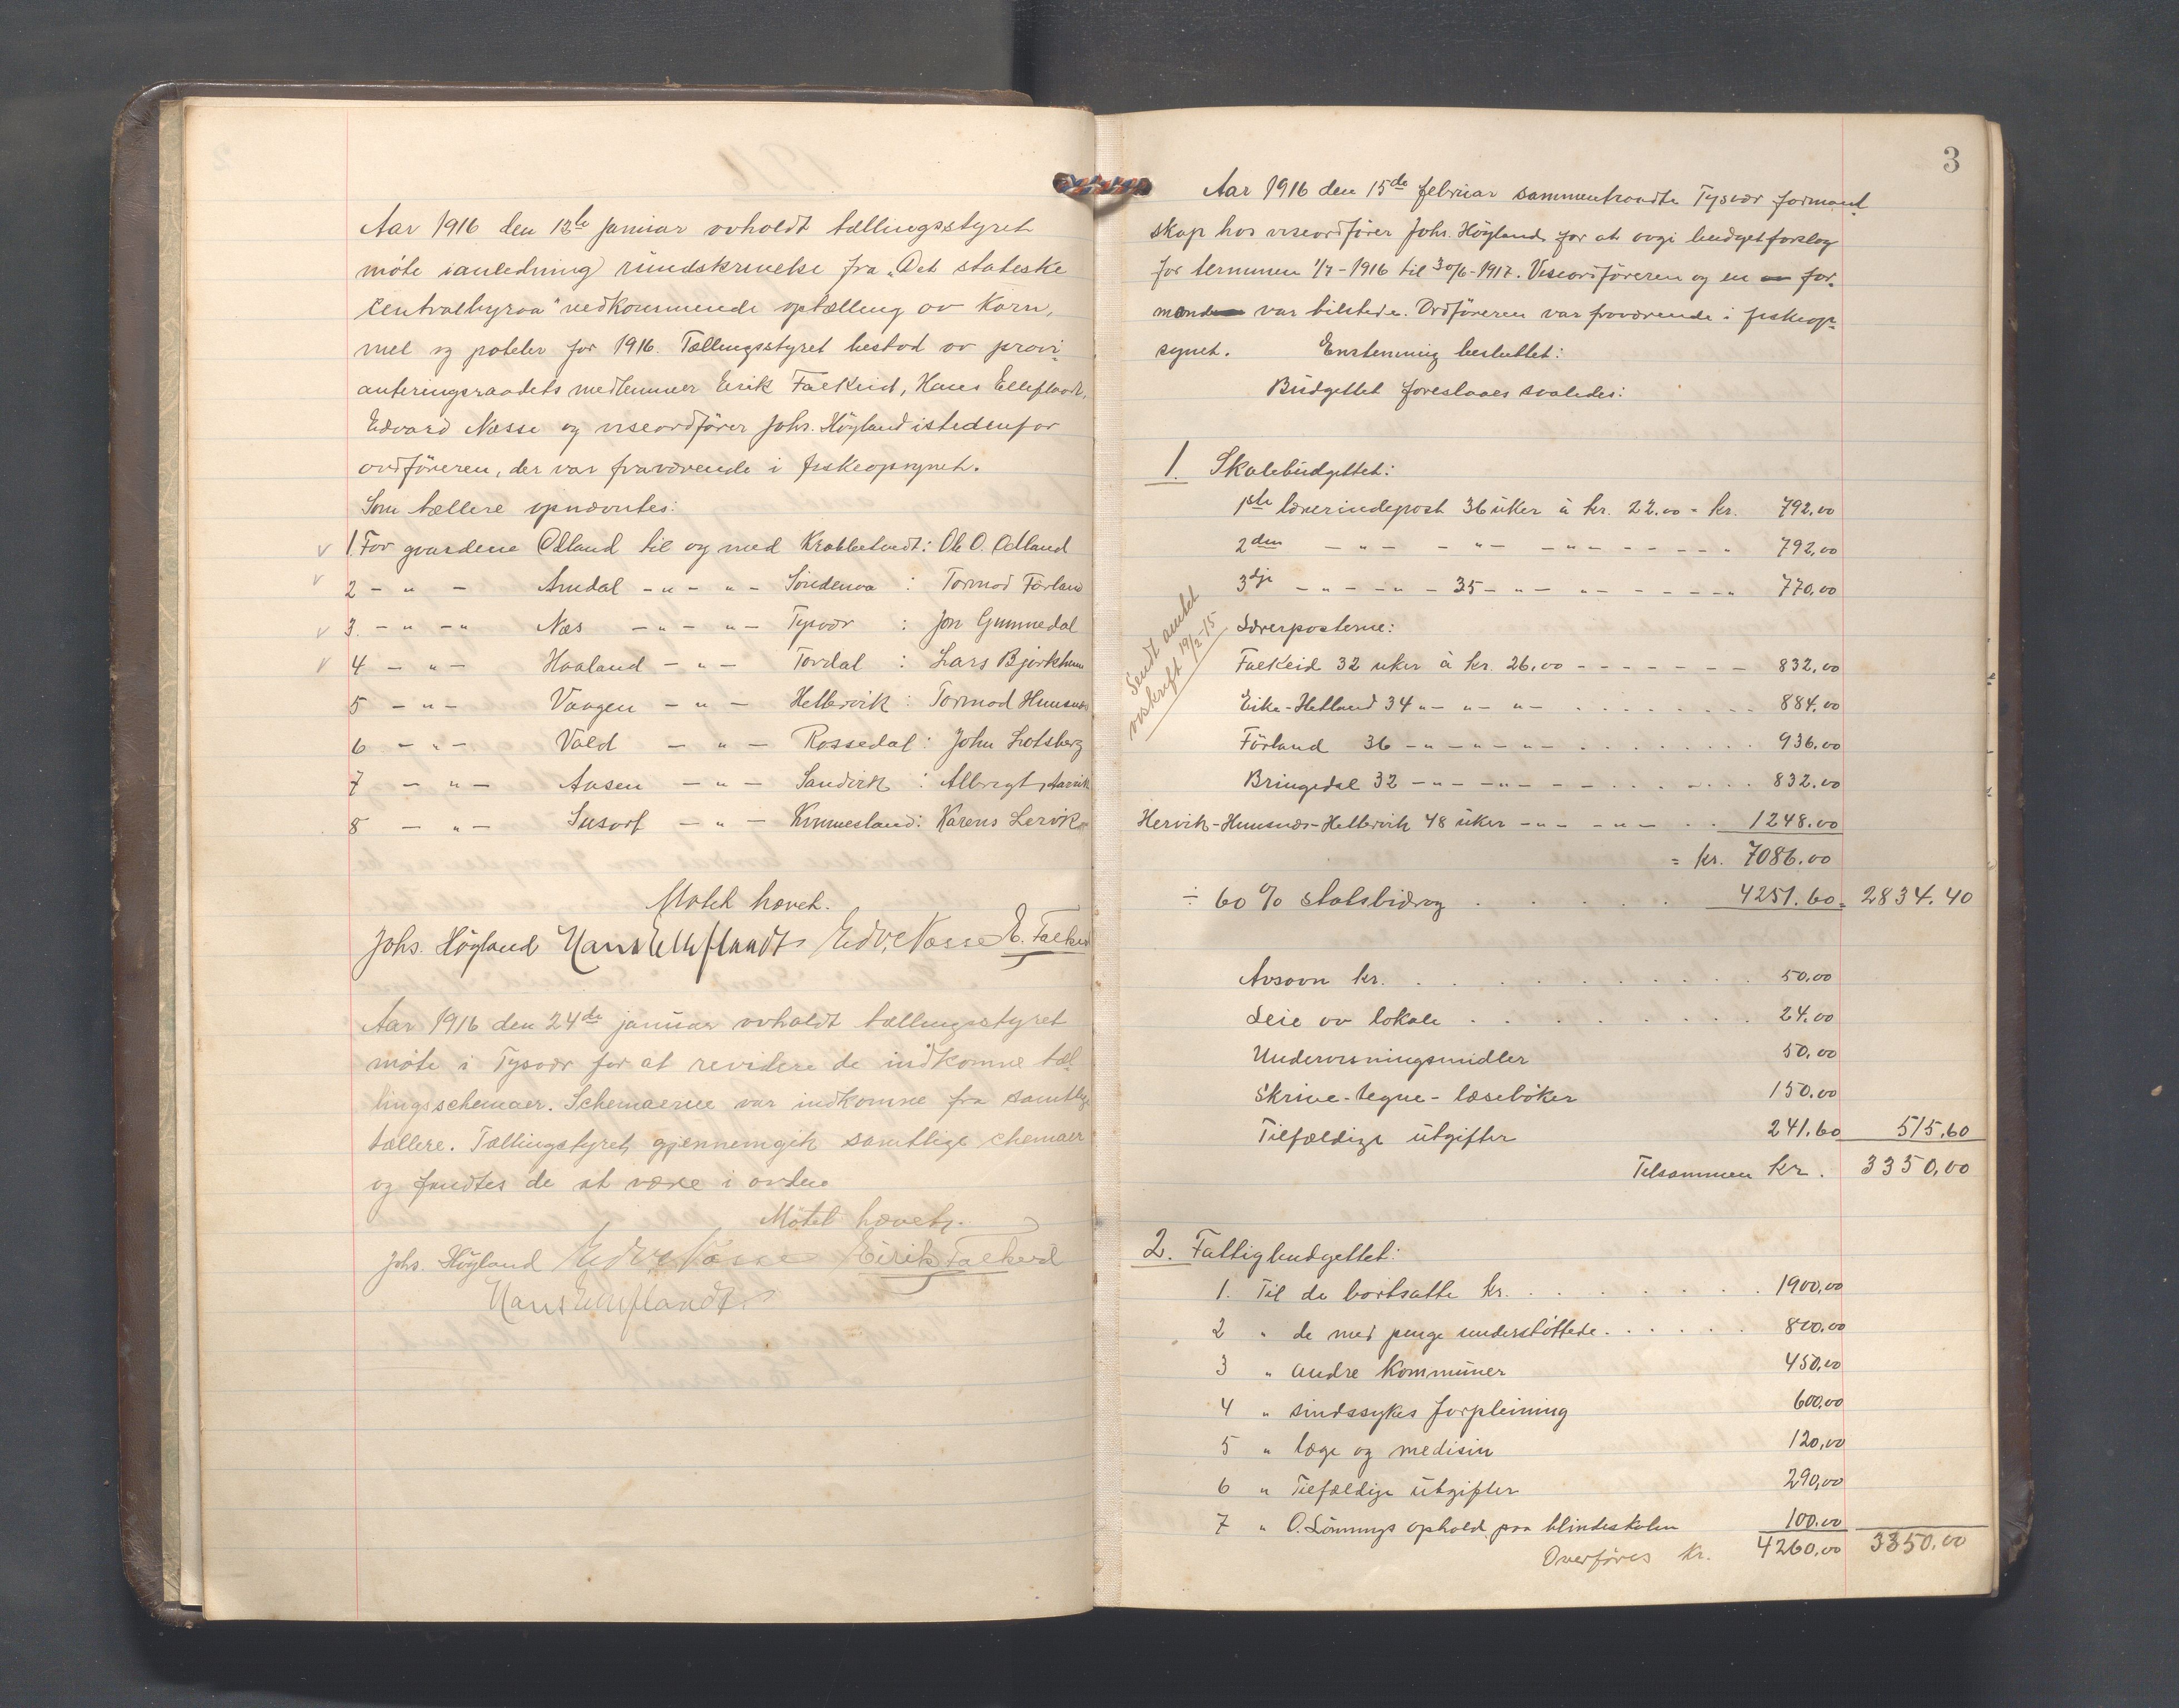 Aar 1916 den 13de januar avholdt tællingsstyret
møte i anledning rundskrivelse fra "Det statiske
Centralbyraa" vedkommende optælling av korn,
mel og poteter for 1916. Tællingsstyret bestod av provi-
anteringsraadets medlemmer Eirik Falkeid, Hans Elleflaadt,
Edvard Næsse og viseordfører Johs. Høyland istedenfor
ordføreren, der var fraværende i fiskeopsynet.
Som tællere opnævntes:
v 1. For gaardene Ødland til og med Krabbetveit: Ole O. Ødland
v 2 - " - Amdal - " - " - Søndenaa : Tormod Førland
v 3. - " - " Næs - " - " - Tysvær : Jon Gummedal
v 4 - " - Haaland - " - Tordal : Lars Bjørkhum
5 - " - Vaagen - " - Hettervik : Tormod Hunsnes
6 - " - Vald - " - Rossedal : John Lotsberg
7 - " - Aasen - " - Sandvik : Albrigt Aarvik
8 - " - Susort - " - Kvinnesland: Karens Lervik
Møtet hævet.
Johs. Høyland Hans Elleflaadt Edv. Næsse E. Falkeid
Aar 1916 den 24de januar avholdt tællingsstyret
møte i Tysvær for at revidere de indkomne tæl-
lingsschemaer. Schemaerne var indkomne fra samtlige
tællere. Tællingstyret gjennemgik samtlige chemaer
og fandtes de at være i orden
Møtet hævet.
Johs. Høyland Edv. Næsse Eirik Falkeid
Hans Elleflaadt
3
Aar 1916 den 15de februar sammentraadte Tysvær formand-
skap hos viseordfører Johs. Høyland for at avgi budgetforslag
for terminen 1/7-1916 til 30/6-1917. Viseordføreren og en for-
mand var tilstede. Ordføreren var fraværende i fiskeop-
synet. Enstemmig besluttet:
Budgettet foreslaaes saaledes:
1. Skolebudgettet:
1ste lærerindepost 36 uker à kr. 22.00 = kr. 792,00
2den - " - - " - - " - - - - - 792,00
3dje - " - - " - 35 - " - " - - - - - 770,00
Lærerposterne:
Falkeid 32 uker à kr. 26,00 - - - - - - - 832,00
Eike-Hetland 34 " - " - " - . . . . . . . 884,00
Førland 36 - " - " - " - . . . . . . . 936,00
Bringedal 32 - " - - " - - - . . . . . . 832.00
Hervik-Hunsnes-Hettervik 48 uker - " - - " - . . 1248.00
= kr. 7086.00
÷ 60 % statsbidrag . . . . . 4251.60 = 2834.40
Sendt amtet
avskrift 19/2-15
Avsavn kr. . . . . . . . . . . 50,00
Leie av lokale . . . . . . . . . 24.00
Undervisningsmidler 50,00
Skrive-tegne-læsebøker 150.00
Tilfældige utgifter 241.60 515,60
Tilsammen kr. 3350,00
2. Fattigbudgettet:
1. Til de bortsatte kr. . . . . . . . . . 1900,00
2 " de med penge understøttede. . . . . . 800,00
3 " andre kommuner 450,00
4 " sindssykes forpleining 600,00
5 " læge og medisin 120,00
6 " Tilfældige utgifter 290,00
7 " O. Lønnings ophold paa blindeskolen 100.00
Overføres kr. 4260,00 3350.00